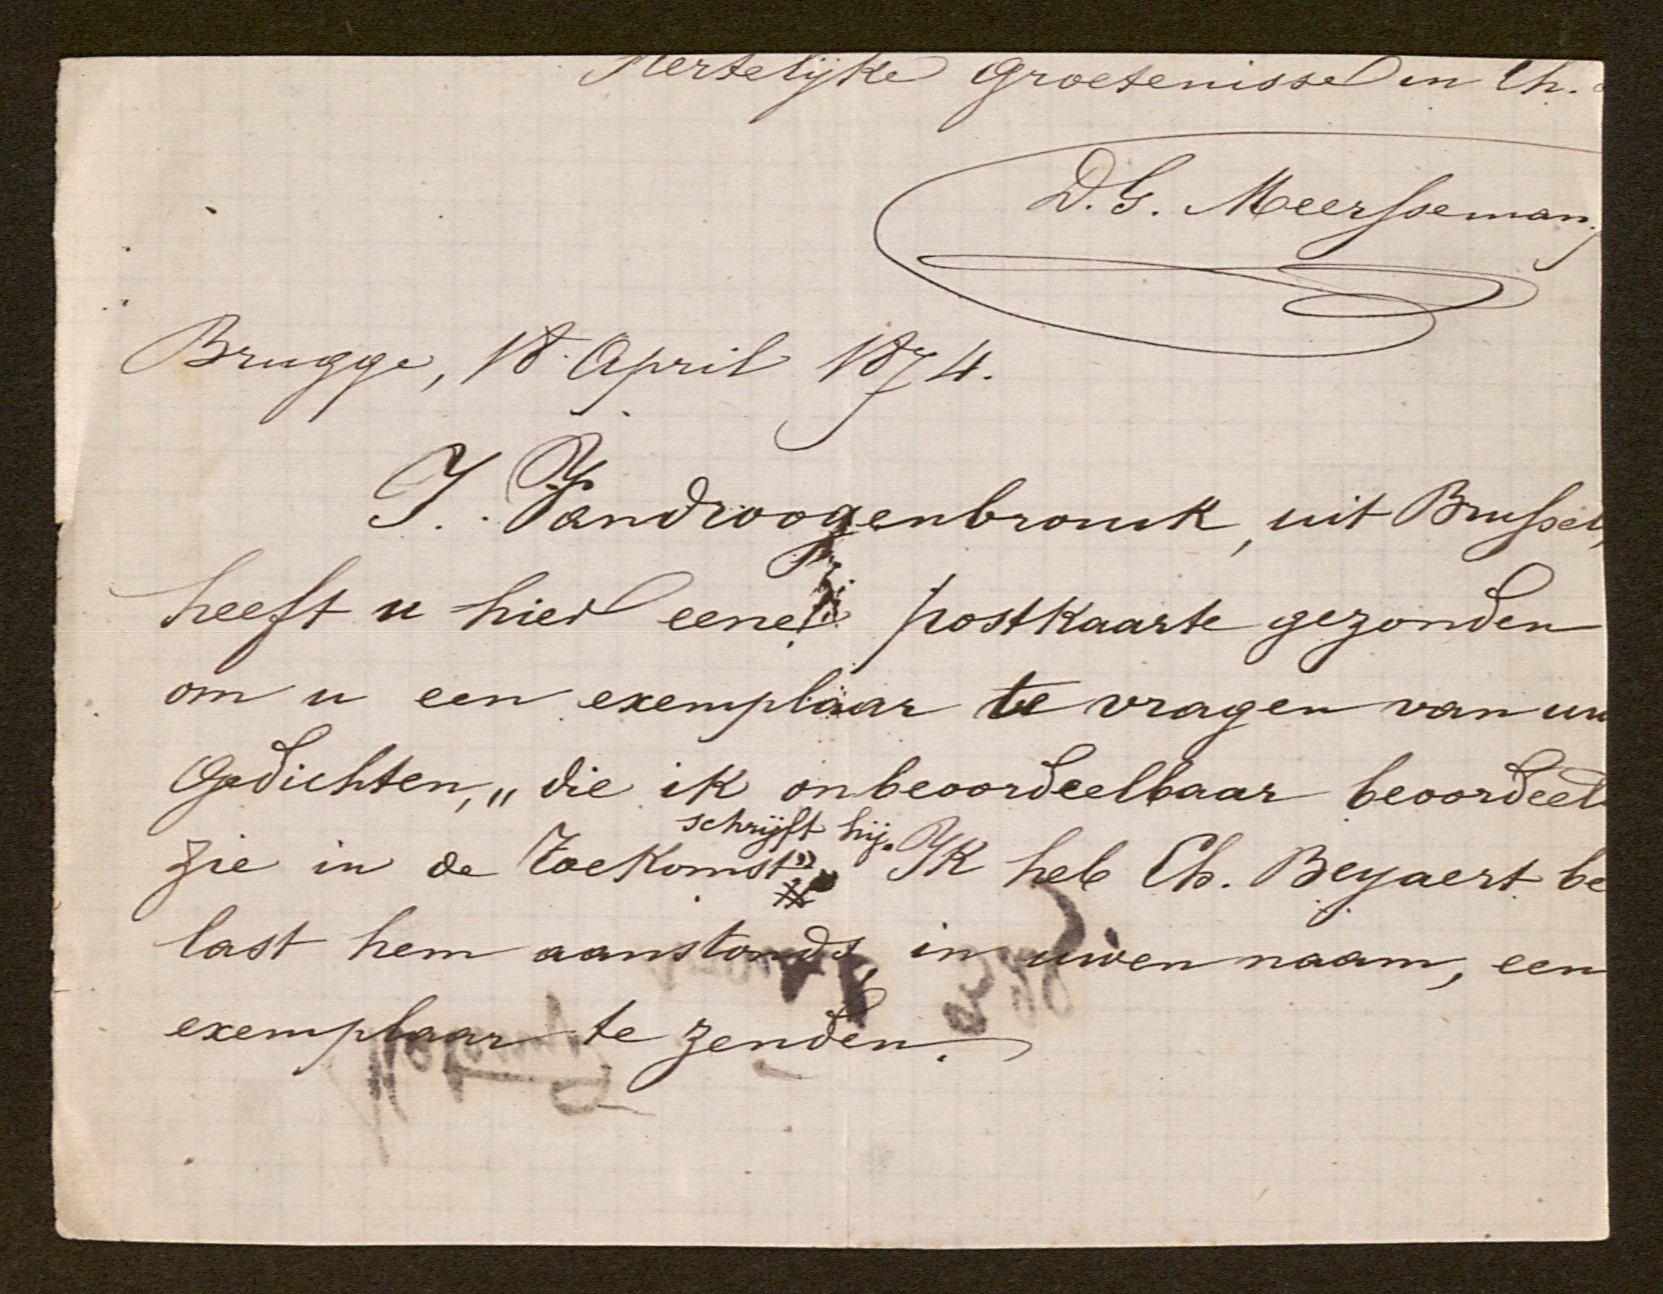 Hertelijke Groetenisse in Ch.
D. G. Meersseman.
Brugge, 18 April 1874.
J. Vandroogenbrouck, uit Brussel,
heeft u hier eene postkaarte gezonden
om u een exemplaar te vragen van uw
Gedichten, „die ik onbeoordeelbaar beoordeel
schrijft hij.
zie in de Toekomst” Ik heb Ch. Beyaert be
last hem aanstonds, in uwen naam, een
exemplaar te zenden.